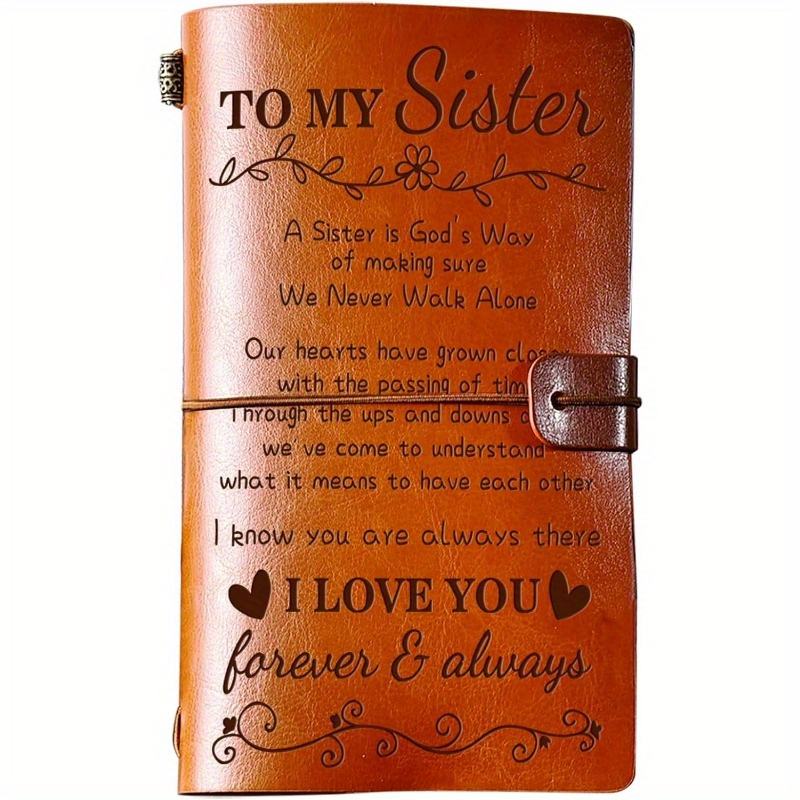 TO MY Sister
A Sister is God's Way
of making sure
We Never Walk Alone
Our hearts have grown close
with the passing of tim
Through the ups and downs
we've come to understand
what it means to have each other
I know you are always there
I LOVE YOU
forever & always